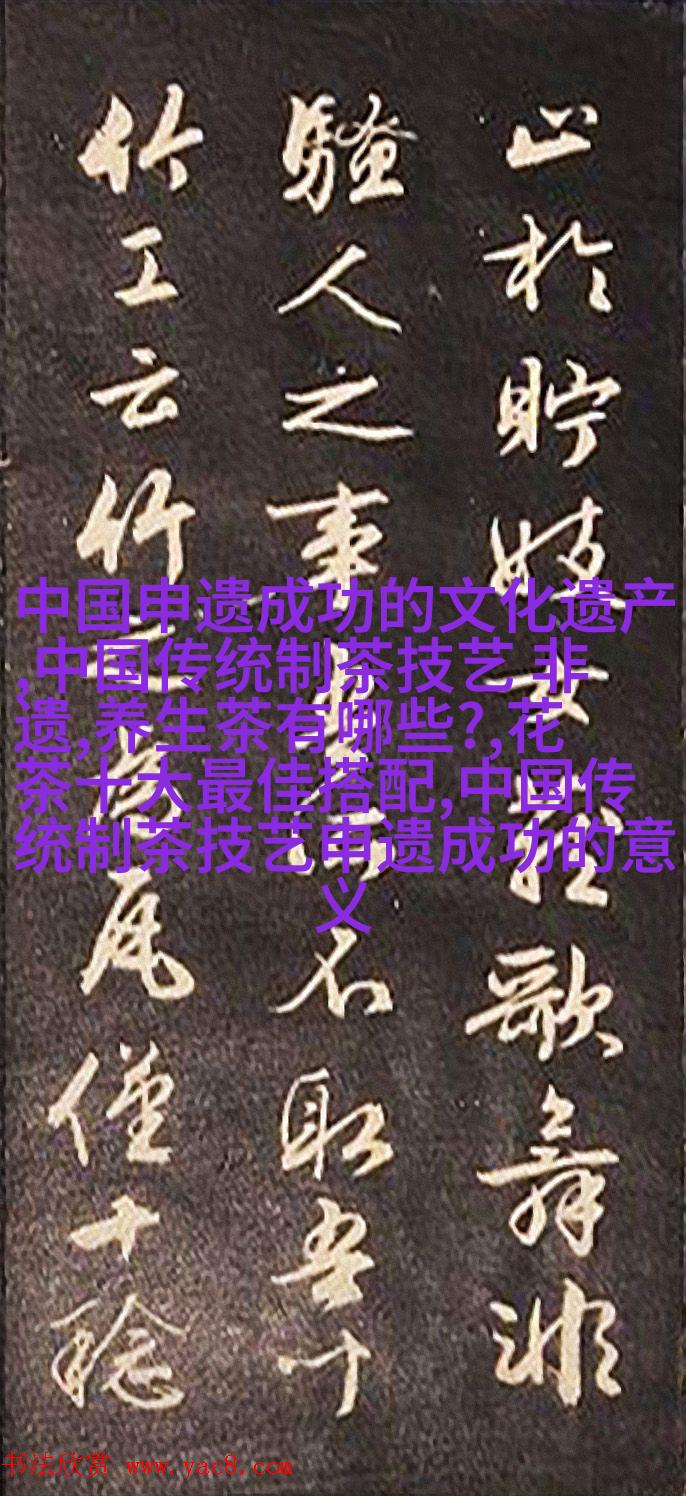 止於貯妓女藏歌舞非
騷人之事吾所不取吾
竹工云竹之為瓦僅十稔
中国申遗成功的文化遗产
,中国传统制茶技艺 非
遗,养生茶有哪些?,花
茶十大最佳搭配,中国传
统制茶技艺申遗成功的意
义
书法欣赏 www.yac8.com